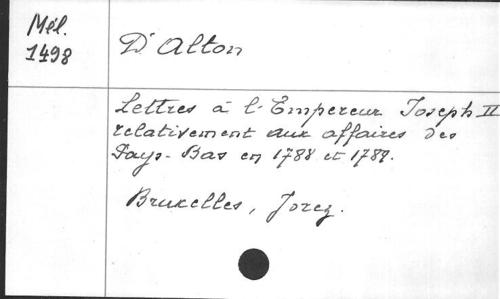 Mél.
1498
D'Alton
Lettres à l'Empereur Joseph II
relativement aux affaires des
Pays-Bas en 1788 et 1789.
Bruxelles, Jorez.